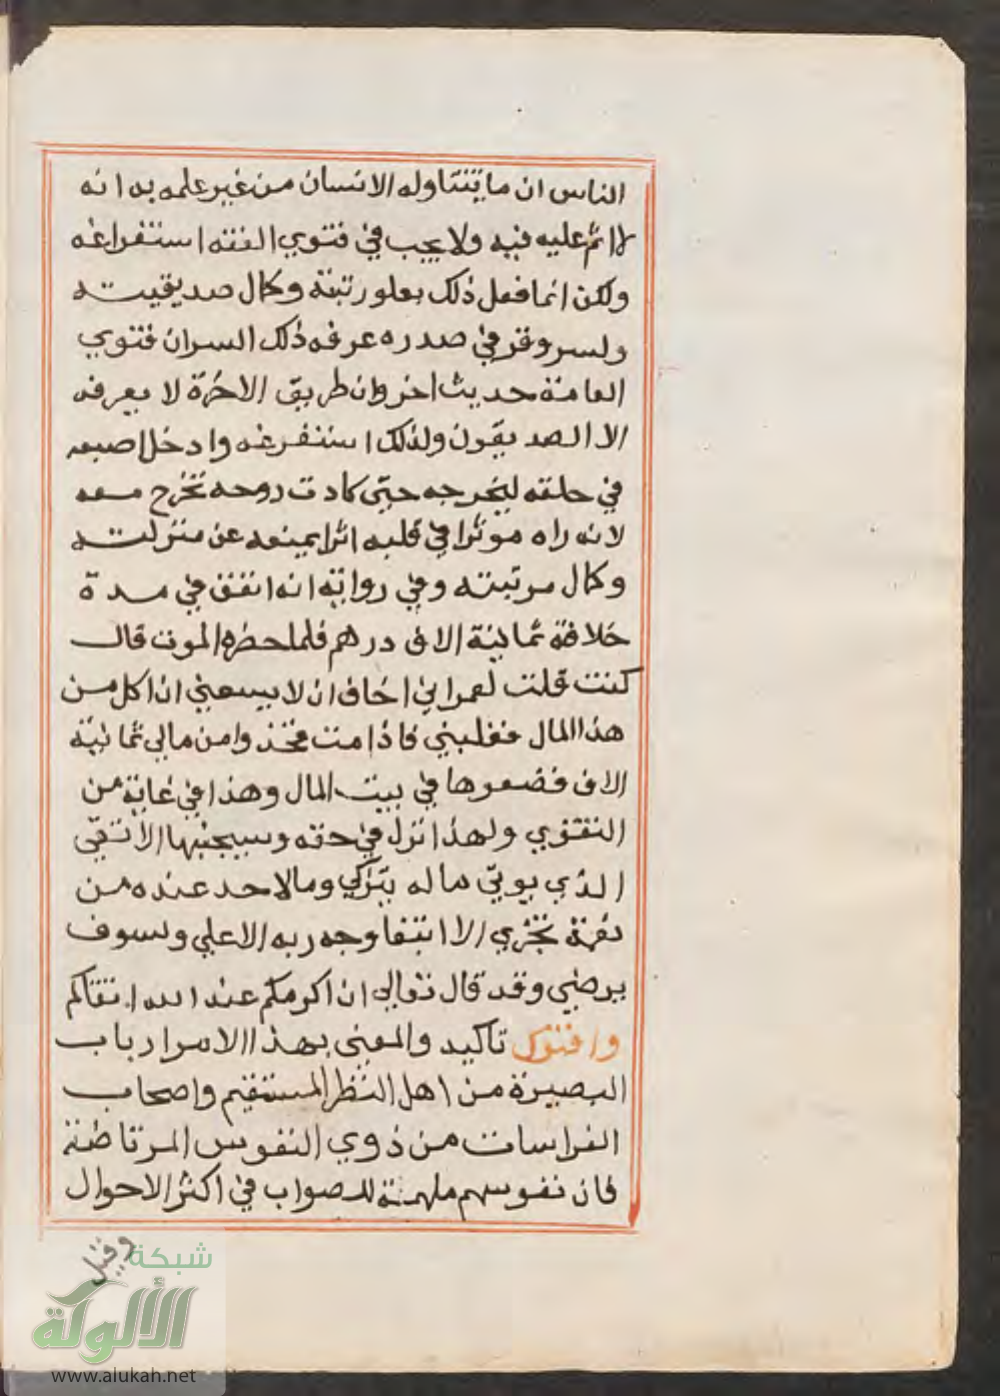 الناس ان ما يتناوله الانسان من غير علمه به انه
لا اثم عليه فيه ولا يجب في فتوي الفقه استفراغه
ولكن انما فعل ذلك بعلو رتبته وكمال صديقيته
ولسر وقر في صدره عرفه ذلك السران فتوي
العامة حديث اخر وان طريق الاخرة لا يعرفه
الا الصديقون ولذلك استفرغه وادخل اصبعه
في حلقه ليخرجه حتي كادت روحه تخرج معه
لانه راه موثرا في قلبه اثرا يمنعه عن منزلته
وكمال مرتبته وفي رواية انه انفق في مدة
خلافة ثمانية الاف درهم فلما حضره الموت قال
كنت قلت لعمر اني اخاف ان لا يسعني ان اكل من
هذا المال فغلبني فاذا مت فخذوا من مالي ثمانية
الاف فضعوها في بيت المال وهذا في غاية من
التقوي ولهذا نزل في حقه وسيجنبها الاتقي
الذي يوتي ماله يتزكي وما لاحد عنده من
نعمة تجزي الا ابتغا وجه ربه الاعلي ولسوف
يرضي وقد قال تعالي ان اكرمكم عند الله اتقاكم
وافتوك تاكيد والمعني بهذا الامر ارباب
البصيرة من اهل النظر المستقيم واصحاب
الفراسات من ذوي النفوس المرتاضة
فان نفوسهم ملهمة للصواب في اكثر الاحوال
وقيل
شبكة
الألوكة
www.alukah.net